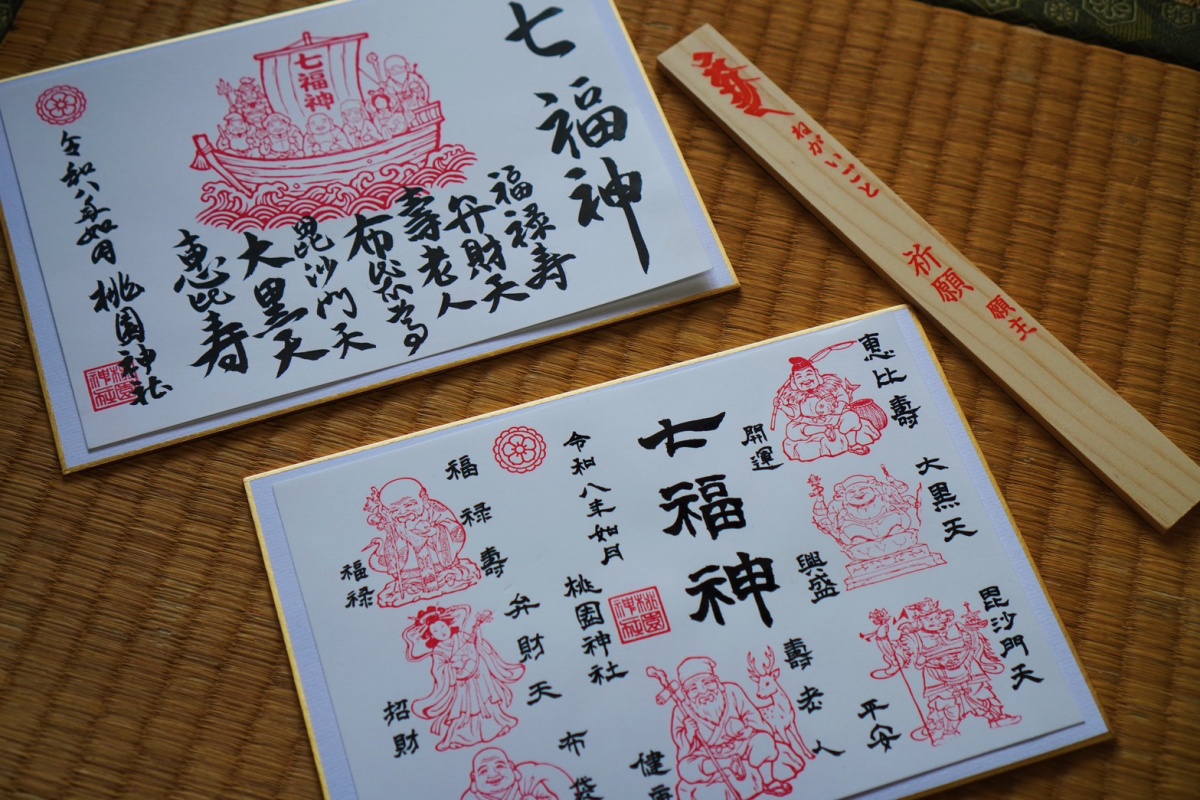 七福神
七福神
福禄寿
弁財天
壽老人
布袋尊
毘沙門天
大黒天
恵比寿
令和八年如月
桃園神社
桃園神社
ねがいごと
祈願
願主
恵比壽
開運
大黒天
興盛
毘沙門天
平安
七福神
壽老人
健康
令和八年如月
桃園神社
桃園神社
布袋
福禄壽
福禄
弁財天
招財